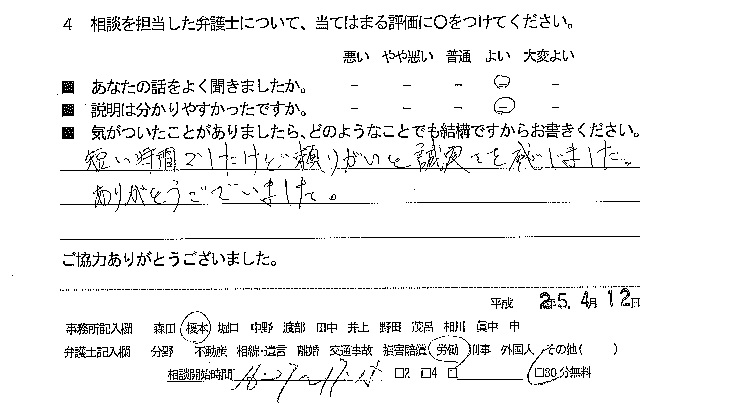 4 相談を担当した弁護士について、当てはまる評価に〇をつけてください。
悪い やや悪い 普通 よい 大変よい
■ あなたの話をよく聞きましたか。 － － － － －
■ 説明は分かりやすかったですか。 － － － － －
■ 気がついたことがありましたら、どのようなことでも結構ですからお書きください。
短い時間でしたけど頼りがいと誠実さを感じました。
ありがとうございました。
ご協力ありがとうございました。
平成 25. 4月 12日
事務所記入欄 森田 榎本 堀口 中野 渡部 田中 井上 野田 茂呂 相川 眞中 申
弁護士記入欄 分野 不動産 相続・遺言 離婚 交通事故 損害賠償 労働 刑事 外国人 その他( )
相談開始時間 16:27～17:15 □2 □4 □ □30分無料